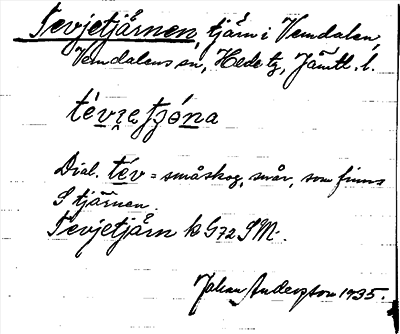 Tevjetjärnen, tjärn i Vemdalen,
Vemdalens sn, Hede tg, Jämtl. l.
tévi̯e tjó̱na
Dial. tév = småskog, snår, som finns
S tjärnen.
Tevjetjärn k G72 SM.
Johan Anderzson 1935.